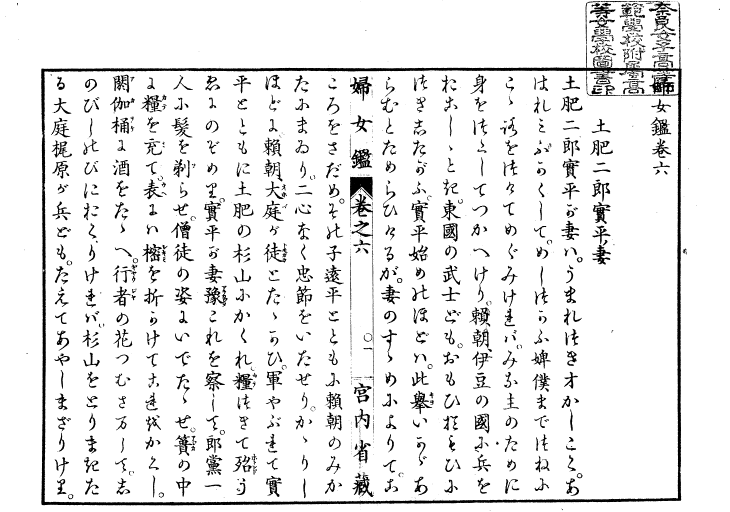 奈良女子高等師
範學校附屬高
等女學校圖書印
婦女鑑卷六
土肥二郎實平ノ妻
土肥二郎實平が妻ハ。うまれつき才かしこく。あ
はれミぶかくして。めしつかふ婢僕までつねに
こゝろをつけてめぐみければ。みな主のために
身をつくしてつかへけり。賴朝伊豆の國に兵を
おこしゝとき。東國の武士ども。おもひおもひに
つきしたがふ。實平始めのほどハ。此擧いかゞあ
らむとためらひけるが。妻のすゝめによりて。こ
婦女鑑 卷之六 〇一 宮内省藏
ころをさだめ。その子遠平とともに賴朝のみか
たにまゐり。二心なく忠節をいたせり。かゝりし
ほどに賴朝大庭が徒とたゝかひ。軍やぶれて實
平とともに土肥の杉山にかくれ。糧つきて殆う
ゑにのぞめり。實平が妻豫これを察して。郎黨一
人に髮を剃らせ。僧徒の姿にいでたゝせ。簣の中
に糧を充て。表にハ樒を折かけてこれをかくし。
閼伽桶に酒をたゝへ。行者の花つむさまして。し
のびしのびにおくりければ。杉山をとりまきた
る大庭梶原が兵ども。たえてあやしまざりけり。